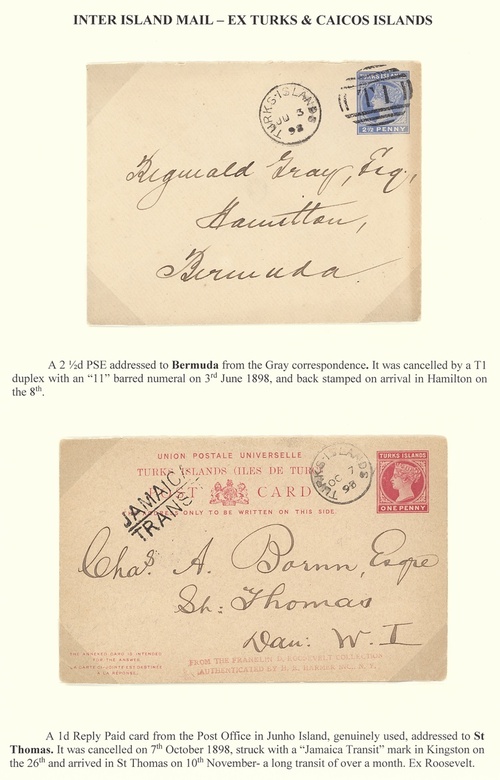 INTER ISLAND MAIL – EX TURKS & CAICOS ISLANDS
TURKS·ISLANDS
JU 3
98
TURKS ISLANDS
T1
2½ PENNY
Reginald Gray, Esq,
Hamilton,
Bermuda.
A 2 ½d PSE addressed to Bermuda from the Gray correspondence. It was cancelled by a T1
duplex with an “11” barred numeral on 3rd June 1898, and back stamped on arrival in Hamilton on
the 8th.
UNION POSTALE UNIVERSELLE
TURKS ISLANDS (ILES DE TUR
TURKS·ISLANDS
OC 7
98
TURKS ISLANDS
ONE PENNY
CARD
JAMAICA
TRANS
ONLY TO BE WRITTEN ON THIS SIDE.
Chas. A. Bornn, Esqre
St. Thomas
Dan. W. I
THE ANNEXED CARD IS INTENDED
FOR THE ANSWER.
LA CARTE CI-JOINTE EST DESTINÉE
À LA RÉPONSE.
FROM THE FRANKLIN D. ROOSEVELT COLLECTION
AUTHENTICATED BY H. R. HARMER INC., N. Y.
A 1d Reply Paid card from the Post Office in Junho Island, genuinely used, addressed to St
Thomas. It was cancelled on 7th October 1898, struck with a “Jamaica Transit” mark in Kingston on
the 26th and arrived in St Thomas on 10th November- a long transit of over a month. Ex Roosevelt.